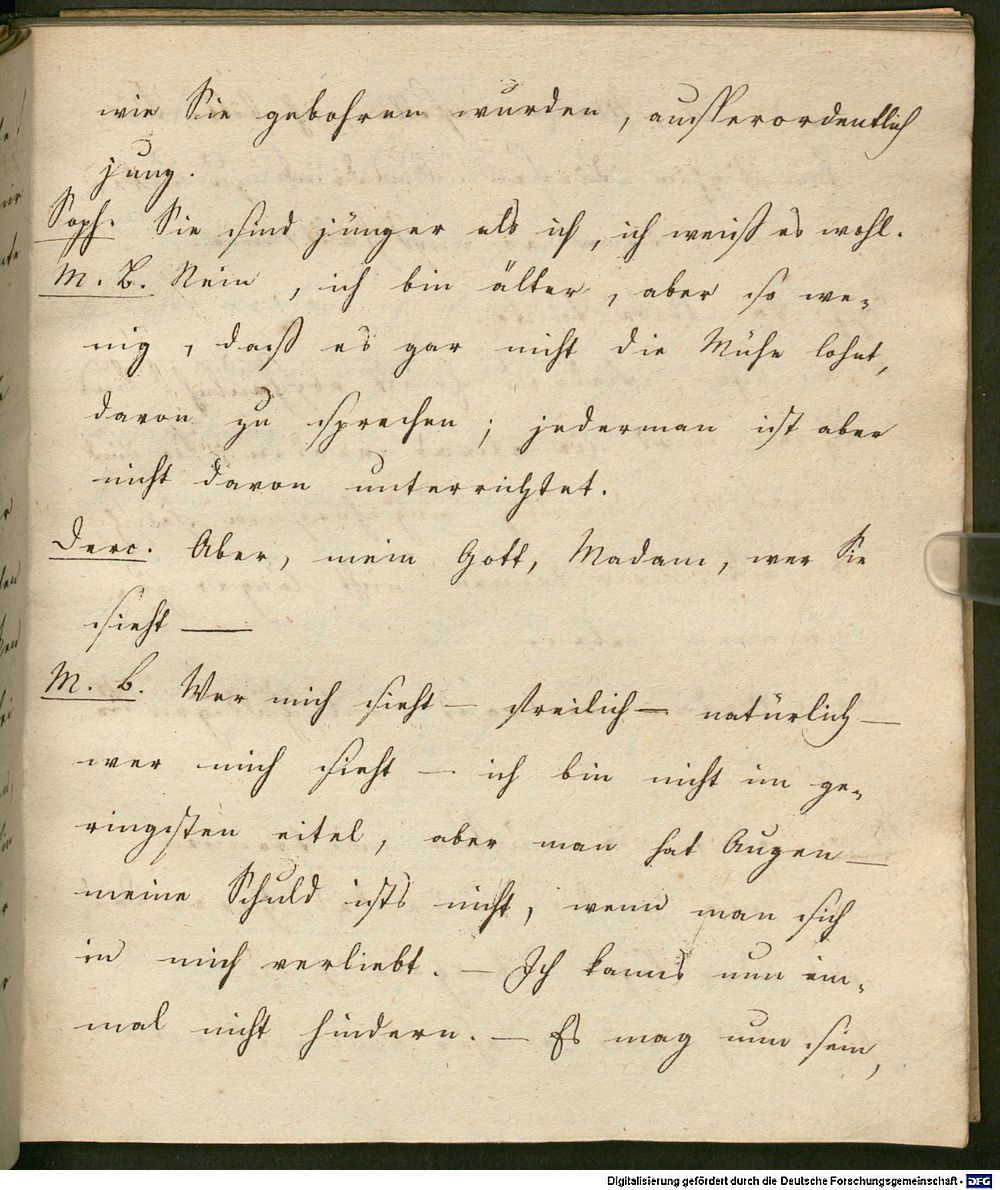 wie Sie gebohren wurden, ausserordentlich
jung.
Soph. Sie sind jünger als ich, ich weiß es wohl.
M. B. Nein, ich bin älter, aber so we-
nig, daß es gar nicht die Mühe lohnt,
davon zu sprechen; jederman ist aber
nicht davon unterrichtet.
Derc. Aber, mein Gott, Madam, wer Sie
sieht —
M. B. Wer mich sieht — freilich — natürlich —
wer mich sieht — ich bin nicht im ge-
ringsten eitel, aber man hat Augen —
meine Schuld ists nicht, wenn man sich
in mich verliebt. — Ich kanns nun ein-
mal nicht hindern. — Es mag nun sein,
Digitalisierung gefördert durch die Deutsche Forschungsgemeinschaft - DFG